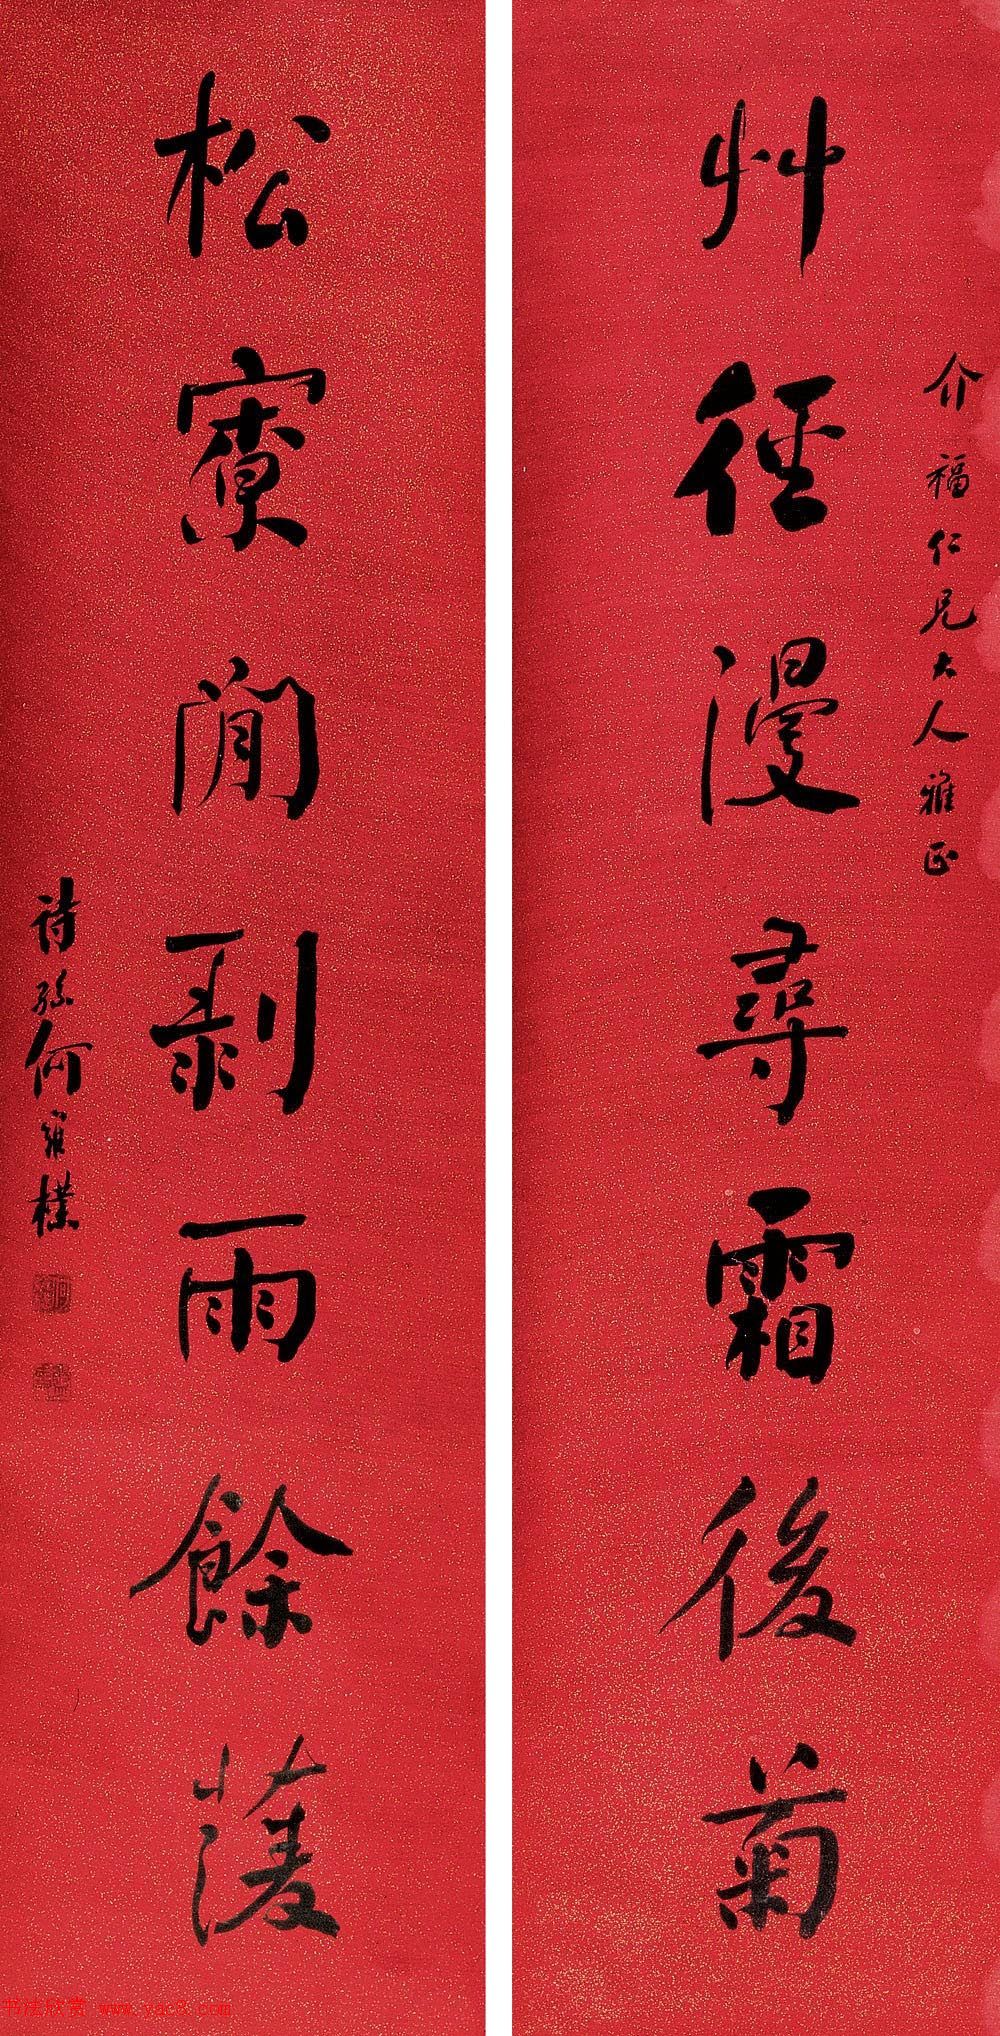 介福仁兄大人雅正
艸徑漫尋霜後菊
松寮閒剝雨餘蔆
詩孫何維樸
书法欣赏 www.yac8.com